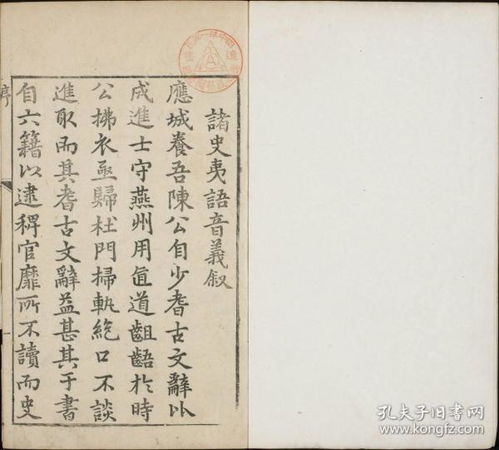 諸史夷語音義叙
應城養吾陳公自少耆古文辭以
成進士守燕州用直道齟齬於時
公拂衣亟歸杜門掃軌絶口不談
進取而其耆古文辭益甚其于書
自六籍以逮稗官靡所不讀而史
序
孔夫子旧书网
www.kongfz.com